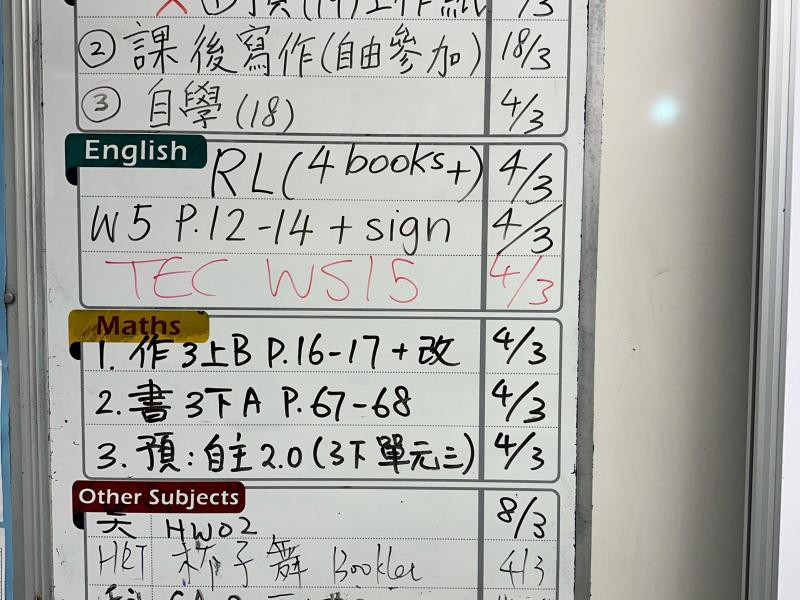 ① 預(14)工作紙 /3
② 課後寫作(自由參加) 18/3
③ 自學(18) 4/3
English RL(4 books+) 4/3
W5 P.12-14 + sign 4/3
TEC WS15 4/3
Maths
1. 作3上B P.16-17+改 4/3
2. 書3下A P.67-68 4/3
3. 預:自主2.0(3下單元三) 4/3
Other Subjects 8/3
HW02
子舞 Booklet 4/3